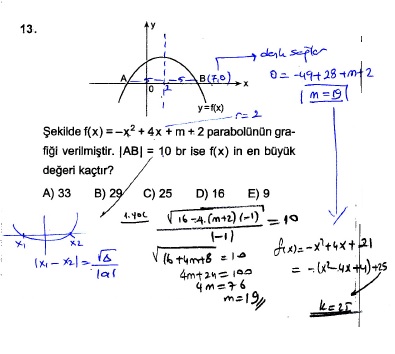 13.
y
A -5 -5 B(7,0) → denk sağlar
0 2 x
y=f(x)
r=2
0=-49+28+m+2
m=19
Şekilde f(x) = –x² + 4x + m + 2 parabolünün gra-
fiği verilmiştir. |AB| = 10 br ise f(x) in en büyük
değeri kaçtır?
A) 33 B) 29 C) 25 D) 16 E) 9
1.yol
√16-4.(m+2)(-1) / |-1| = 10
√16+4m+8 = 10
4m+24=100
4m=76
m=19//
x₁ x₂
|x₁-x₂|=√Δ/|a|
f(x)=-x²+4x+21
=-(x²-4x+4)+25
k=25